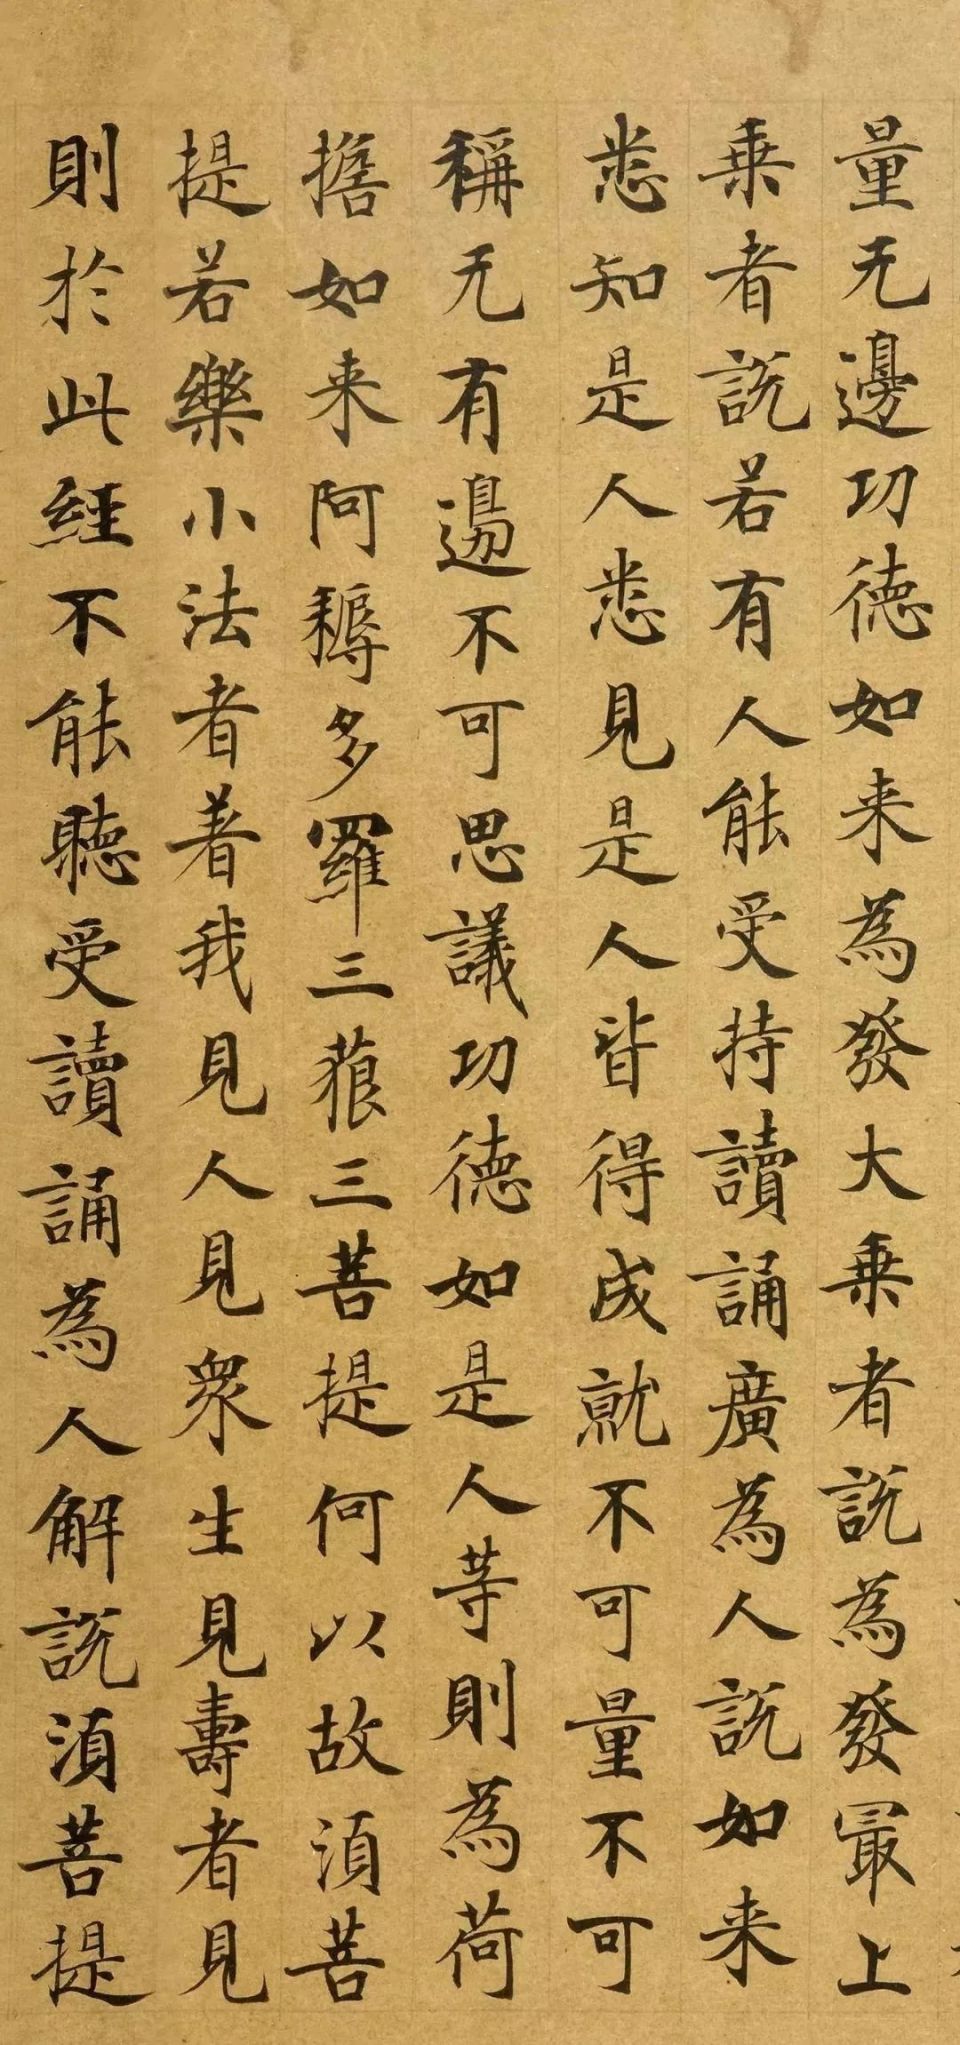 量无邊功德如来為發大乗者說為發冣上
乗者說若有人能受持讀誦廣為人說如来
悉知是人悉見是人皆得成就不可量不可
稱无有邊不可思議功德如是人等則為荷
擔如来阿耨多羅三藐三菩提何以故須菩
提若樂小法者著我見人見衆生見壽者見
則於此經不能聽受讀誦為人解說須菩提